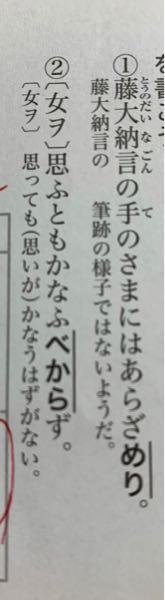 ①藤大納言の手のさまにはあらざめり。
とうのだいなごん　て
藤大納言の　筆跡の様子ではないようだ。
②〔女ヲ〕思ふともかなふべからず。
〔女ヲ〕　思っても(思いが)かなうはずがない。